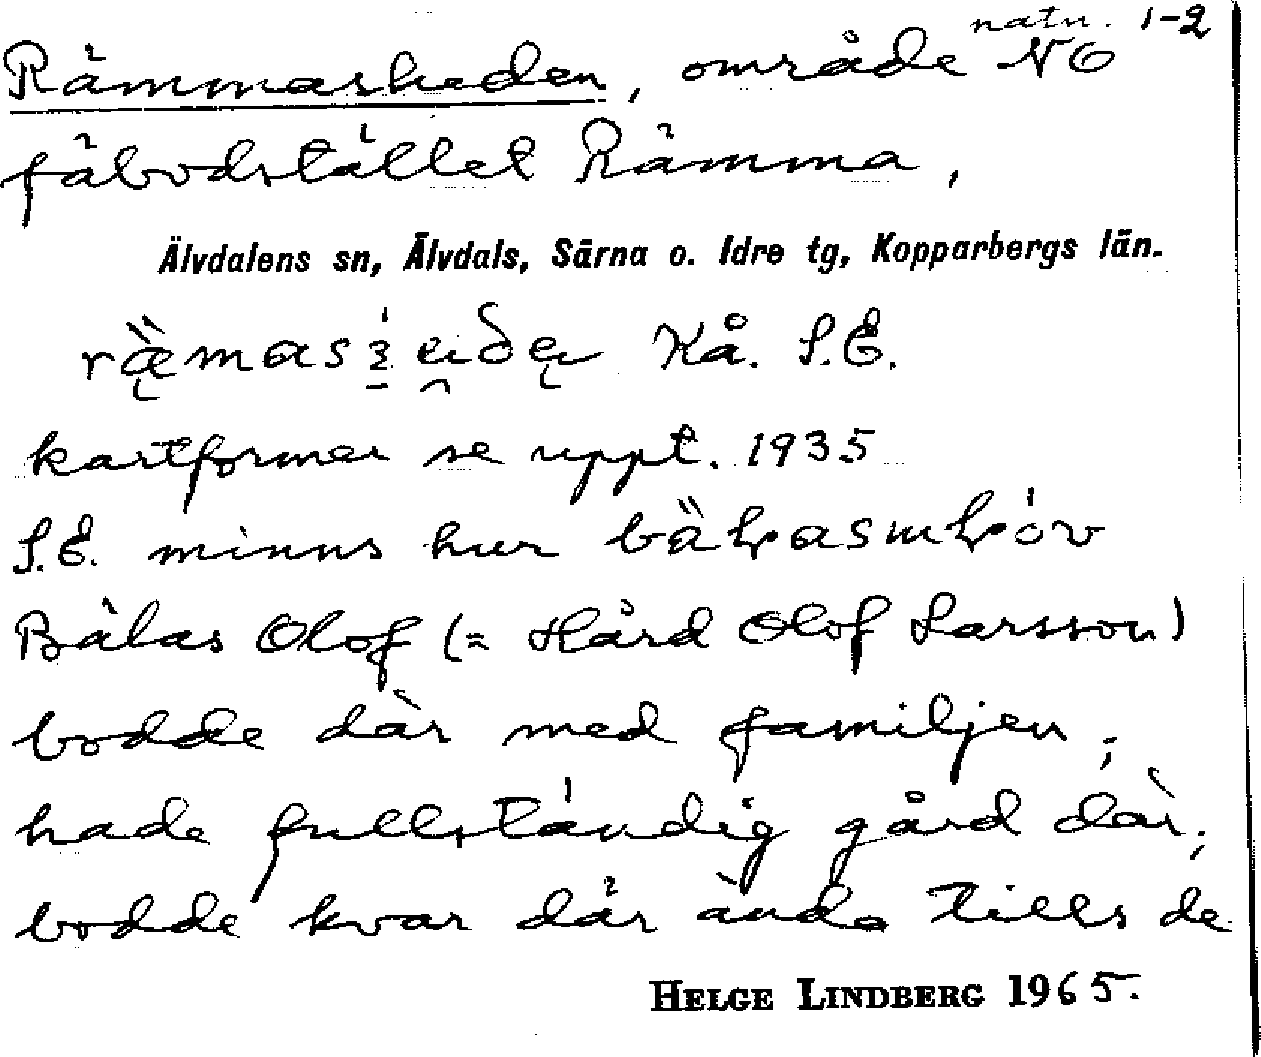 natn. 1-2
Rämmasheden, område NO
fäbodstället Rämma,
Älvdalens sn, Älvdals, Särna o. Idre tg, Kopparbergs län.
Kå. S.E.
kartformer se uppt. 1935
S.E. minns hur
Bälas Olof (= Hård Olof Larsson)
bodde där med familjen;
hade fullständig gård där;
bodde kvar där ända tills de
HELGE LINDBERG 1965.